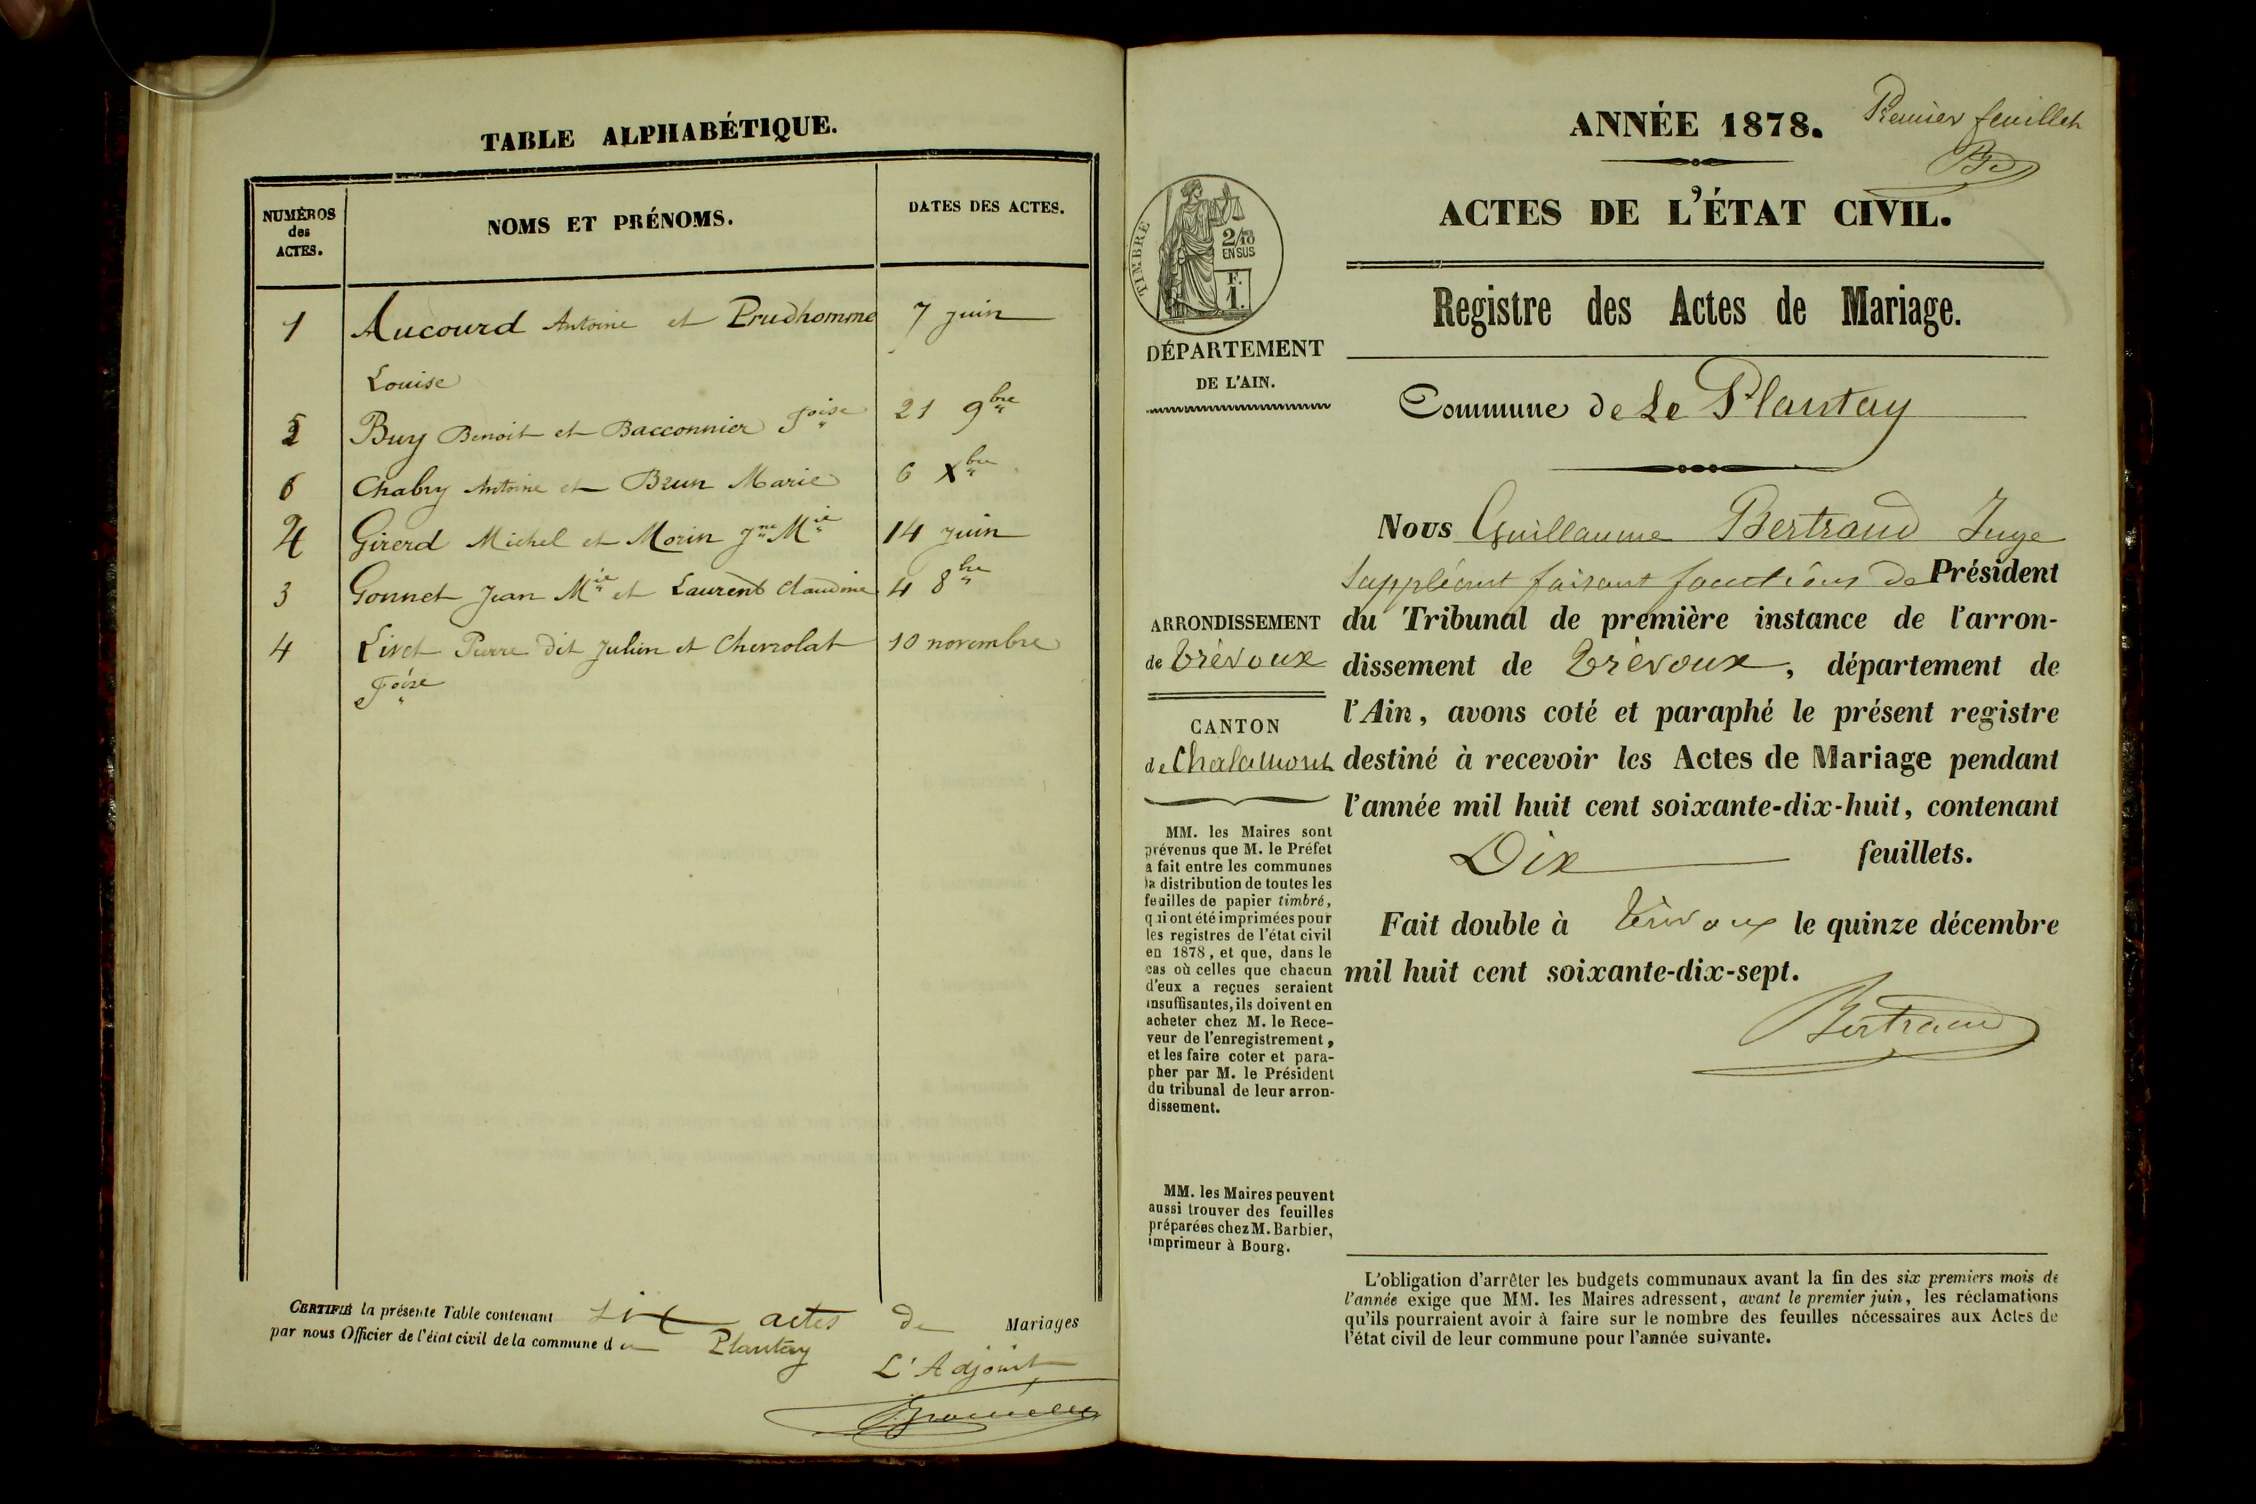 TABLE ALPHABÉTIQUE.
NUMÉROS
des
ACTES.
NOMS ET PRÉNOMS.
DATES DES ACTES.
1 Aucourd Antoine et Prudhomme 7 juin
Louise
5 Buy Benoit et Bacconnier Foise 21 9bre
6 Chabry Antoine et Brun Marie 6 Xbre
2 Girerd Michel et Morin Jne Mie 14 juin
3 Gonnet Jean Mie et Laurent Claudine 4 8bre
4 Livet Pierre dit Julien et Chevrolat 10 novembre
Foise
CERTIFIÉ la présente Table contenant six actes de Mariages
par nous Officier de l'état civil de la commune du Plantay
L'Adjoint
Premier feuillet
ANNÉE 1878.
ACTES DE L'ÉTAT CIVIL.
TIMBRE
2/10
EN SUS
F.
1.
Registre des Actes de Mariage.
DÉPARTEMENT
DE L'AIN.
Commune de Le Plantay
ARRONDISSEMENT
de Trévoux
CANTON
de Chalamont
MM. les Maires sont
prévenus que M. le Préfet
a fait entre les communes
la distribution de toutes les
feuilles de papier timbré,
qui ont été imprimées pour
les registres de l'état civil
en 1878, et que, dans le
cas où celles que chacun
d'eux a reçues seraient
insuffisantes, ils doivent en
acheter chez M. le Rece-
veur de l'enregistrement,
et les faire coter et para-
pher par M. le Président
du tribunal de leur arron-
dissement.
MM. les Maires peuvent
aussi trouver des feuilles
préparées chez M. Barbier,
imprimeur à Bourg.
Nous Guillaume Bertrand Juge
Suppléant faisant fonctions de Président
du Tribunal de première instance de l'arron-
dissement de Trévoux, département de
l'Ain, avons coté et paraphé le présent registre
destiné à recevoir les Actes de Mariage pendant
l'année mil huit cent soixante-dix-huit, contenant
Dix feuillets.
Fait double à Trévoux le quinze décembre
mil huit cent soixante-dix-sept.
Bertrand
L'obligation d'arrêter les budgets communaux avant la fin des six premiers mois de
l'année exige que MM. les Maires adressent, avant le premier juin, les réclamations
qu'ils pourraient avoir à faire sur le nombre des feuilles nécessaires aux Actes de
l'état civil de leur commune pour l'année suivante.